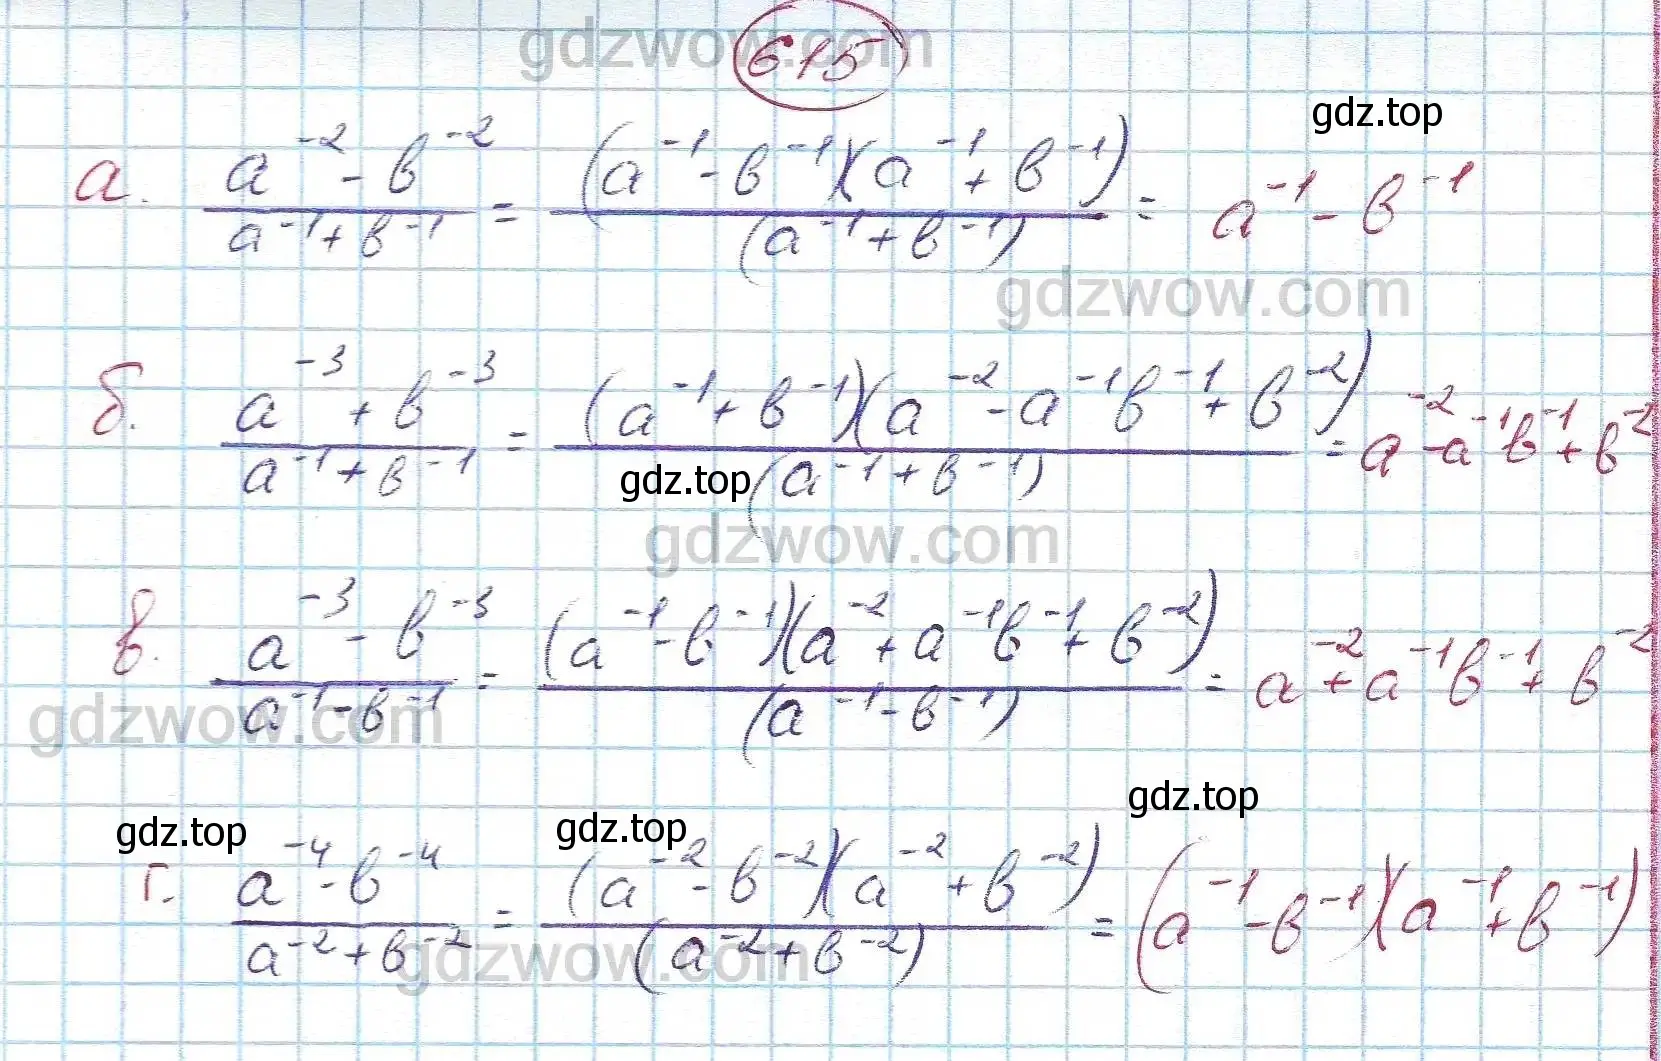 gdzwow.com
615
gdz.top
а. (a⁻² - b⁻²)/(a⁻¹ + b⁻¹) = ((a⁻¹ - b⁻¹)(a⁻¹ + b⁻¹))/((a⁻¹ + b⁻¹)) = a⁻¹ - b⁻¹
gdzwow.com
б. (a⁻³ + b⁻³)/(a⁻¹ + b⁻¹) = ((a⁻¹ + b⁻¹)(a⁻² - a⁻¹b⁻¹ + b⁻²))/((a⁻¹ + b⁻¹)) = a⁻² - a⁻¹b⁻¹ + b⁻²
gdz.top
gdzwow.com
в. (a⁻³ - b⁻³)/(a⁻¹ - b⁻¹) = ((a⁻¹ - b⁻¹)(a⁻² + a⁻¹b⁻¹ + b⁻²))/((a⁻¹ - b⁻¹)) = a⁻² + a⁻¹b⁻¹ + b⁻²
gdzwow.com
gdz.top gdz.top gdz.top
г. (a⁻⁴ - b⁻⁴)/(a⁻² + b⁻²) = ((a⁻² - b⁻²)(a⁻² + b⁻²))/((a⁻² + b⁻²)) = (a⁻¹ - b⁻¹)(a⁻¹ + b⁻¹)
gdzwow.com